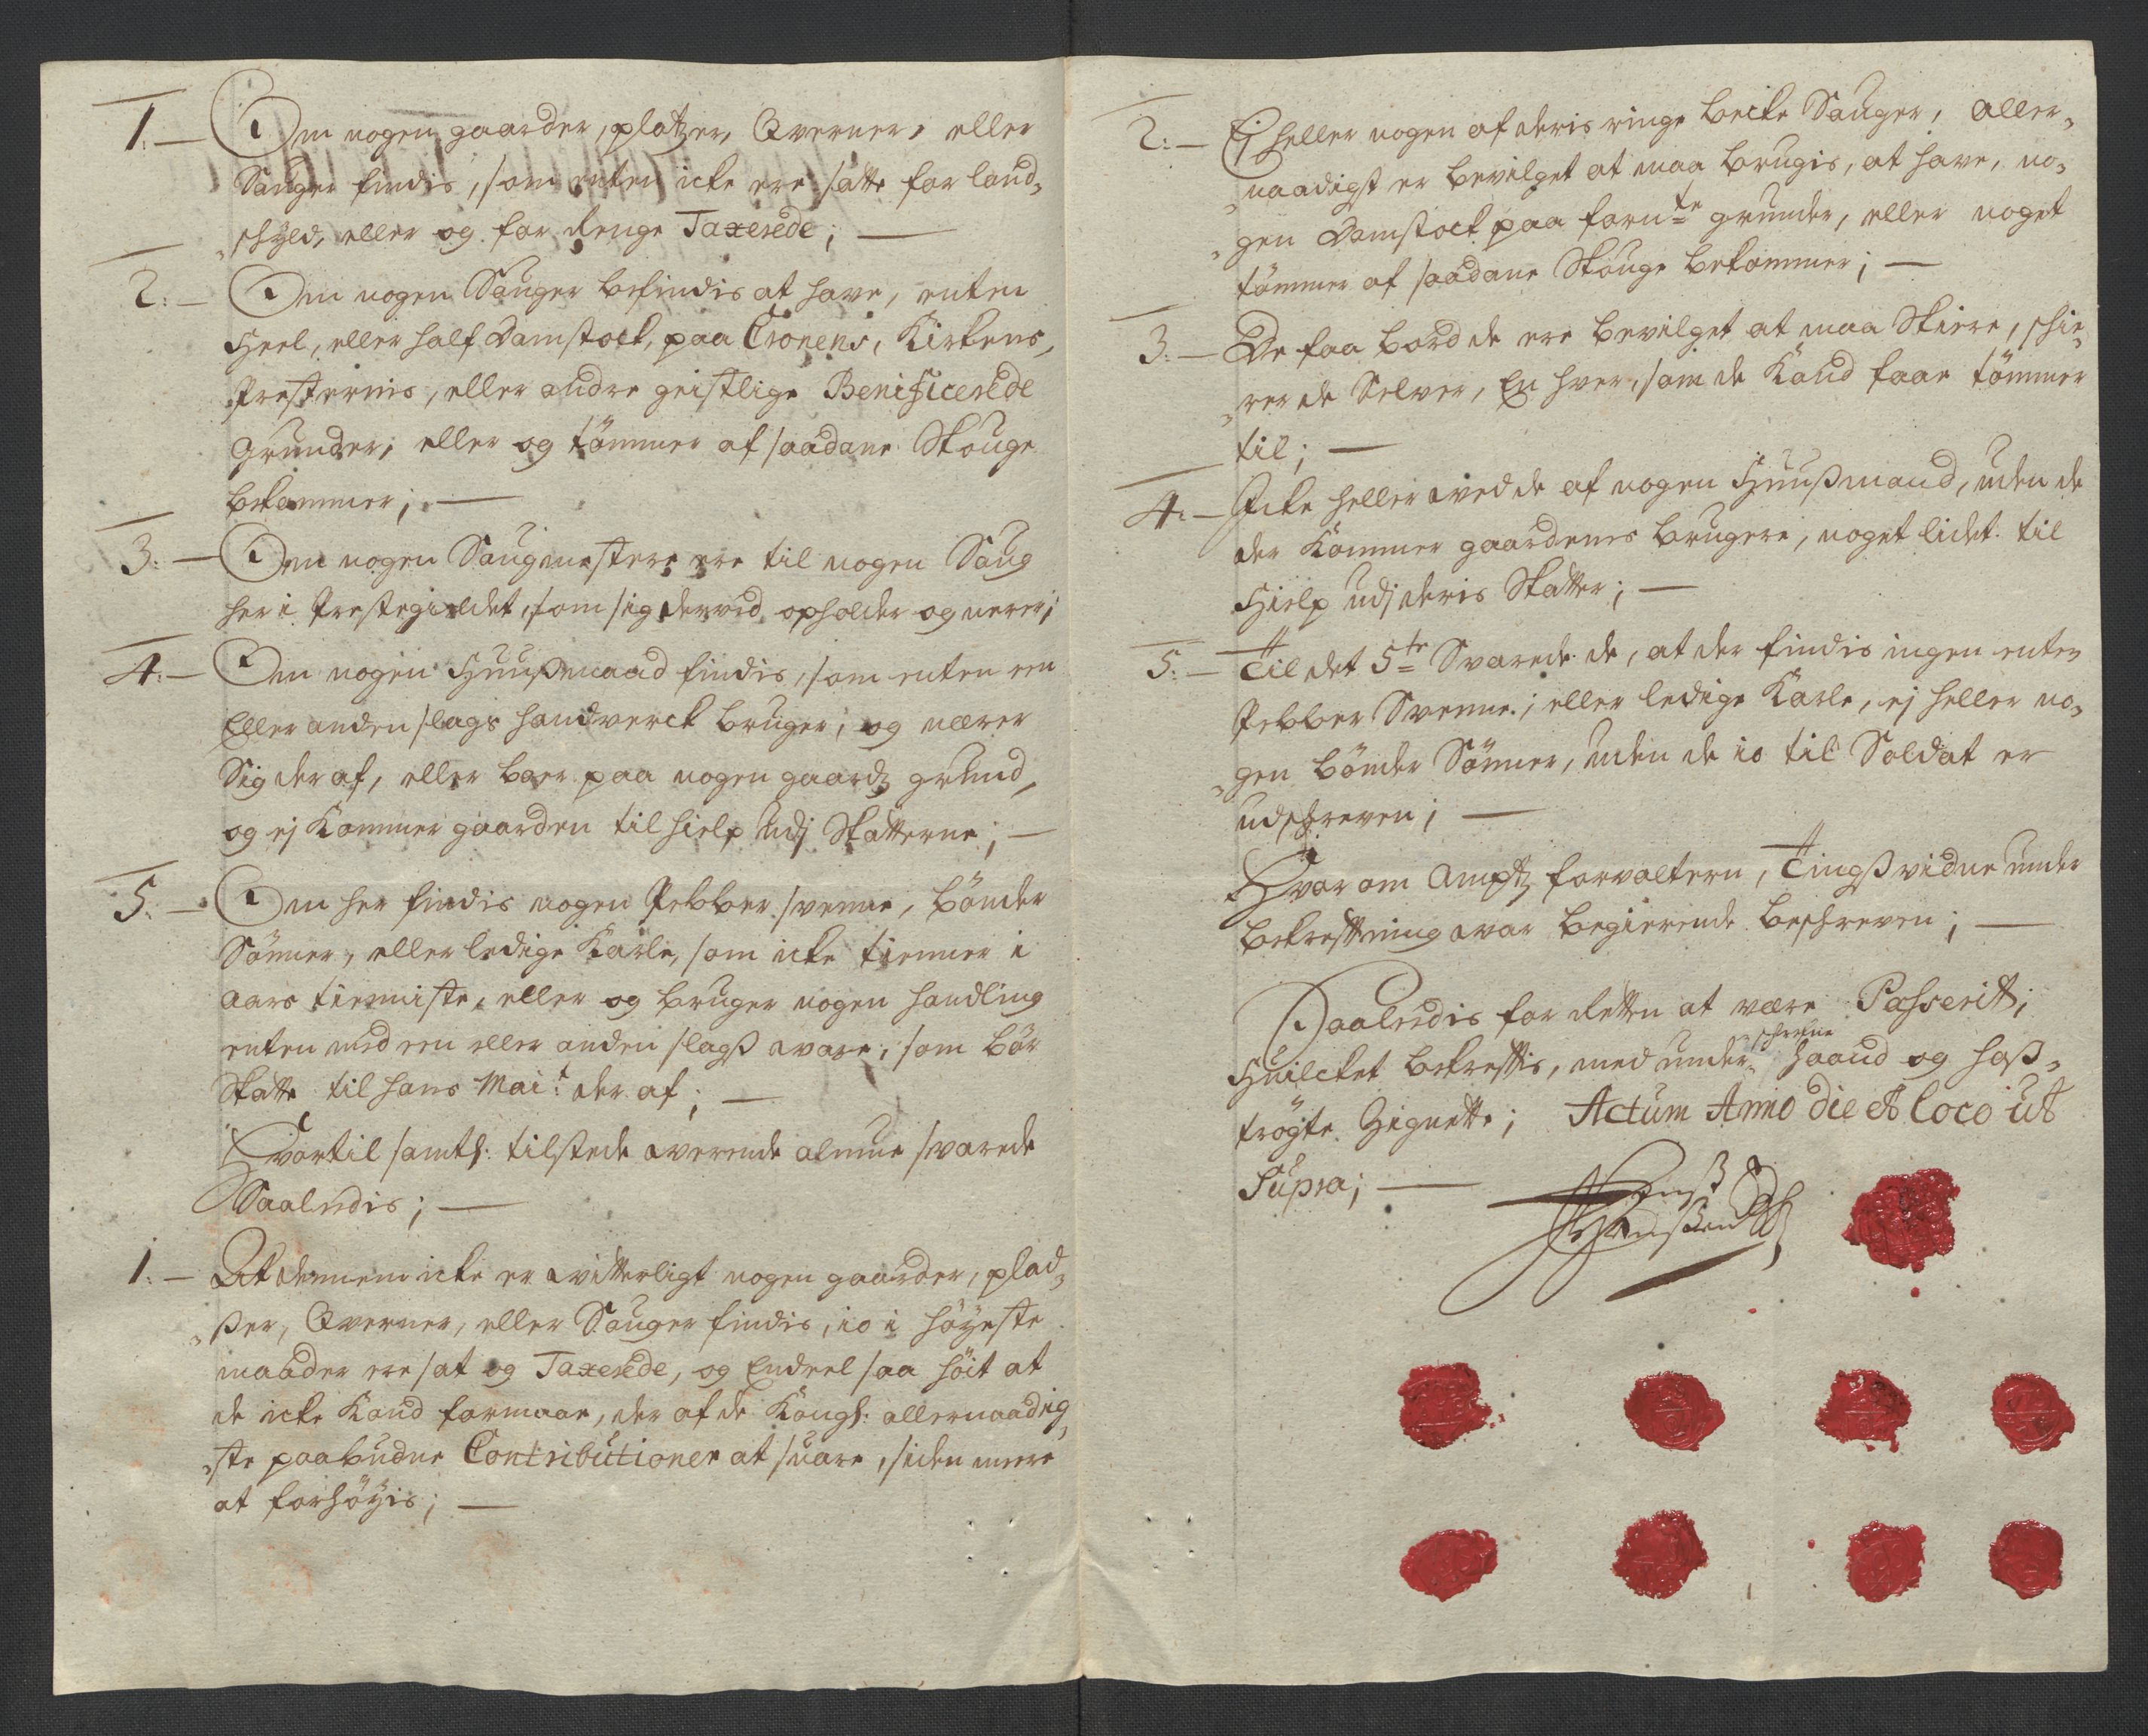 1. — Om nogen gaarder, platzer, Qverner, eller
Sauger findis, som enten icke ere satte for land-
schyld, eller og for lenge Taxerede; —
2: — Om nogen Sauger befindis at have, enten
Heel, eller half Damstock, paa Cronens, Kirkens,
Presternis, eller andre geistlige Benificerede
Grunder, eller og tömmer af saadane Skouge
bekommer; —
3: — Om nogen Saugmestere ere til nogen Saug
her i Prestegieldet, som sig derved opholder og nerer;
4: — Om nogen Huusmand findis, som enten een
Eller anden slags handverck bruger, og nærer
Sig der af, eller boer paa nogen gaardz grund,
og ej Kommer gaarden til hielp udj Skatterne; —
5: — Om her findis nogen Pebber svenne, bönder
Sönner, eller ledige Karle, som icke tienner i
aars tienniste, eller og bruger nogen handling
enten med een eller anden slagß ware, som bör
Skatte til hans Mai:t der af; —
Hvortil samtl: tilstede werende almue svarede
Saaledis; —
1. — At dennem icke er witterligt nogen gaarder, plad-
ßer, Qverner, eller Sauger findis, io i höyeste
maader ere sat og Taxerede, og Endeel saa höit at
de icke Kand formaae, der af de Kongl: allernaadig-
ste paabudne Contributioner at suare, siden meere
at forhöyis; —
2: — Ej heller nogen af deris ringe becke Sauger, aller-
naadigst er bevilget at maa brugis, at have, no-
gen Damstock paa fornte grunder, eller noget
tömmer af saadane Skouge bekommer; —
3: — De faa bord de ere bevilget at maa Skiere, schie-
rer de Selver, En hver, som de Kand faae tömmer
til; —
4: — Icke heller wed de af nogen Huußmand, uden de
der Kommer gaardenes brugere, noget lidet til
Hielp udj deris Skatter; —
5: — Til det 5te Svarede de, at der findis ingen enten
Pebber Svenne, eller ledige Karle, ej heller no-
gen bönder Sönner, uden de io til Soldat er
udschreven; —
Hvor om Amptz forvaltern, Tingß vidne under
bekreftning war begierende beschreven; —
Saaledis for Retten at være Passerit;
Huilcket bekreftis, med under schrevne haand og hoß-
trögte Zignette; Actum Anno die et loco ut
Supra; —